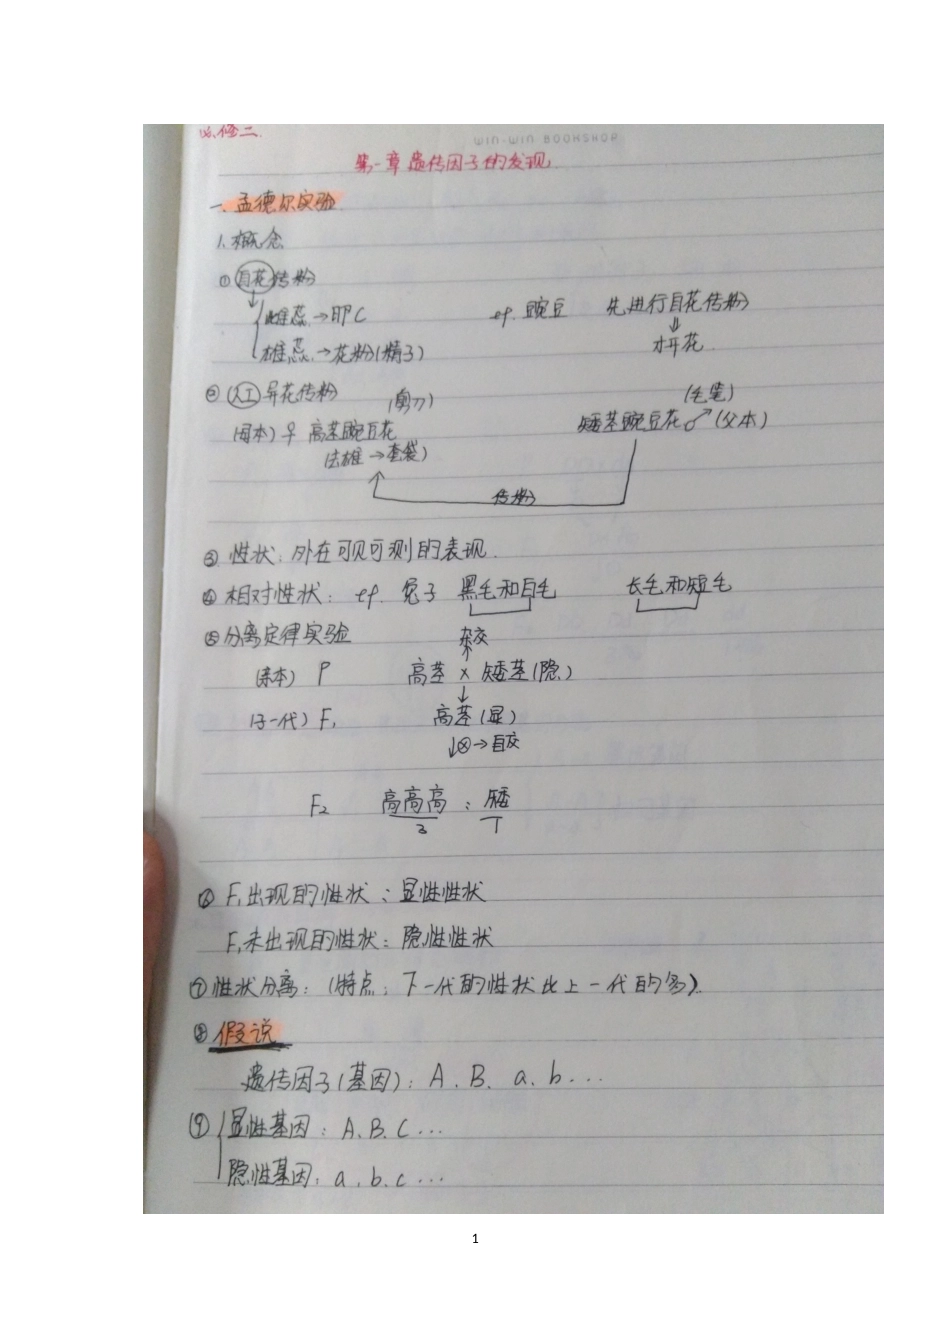 必修二.
WIN-WIN BOOKSHOP
第一章遗传因子的发现
一.孟德尔实验
1.概念
①自花传粉
雌蕊→卵C eg. 豌豆 先进行自花传粉
⇓
雄蕊→花粉(精子) 才开花
②人工异花传粉 (剪刀) (毛笔)
(母本)♀ 高茎豌豆花 矮茎豌豆花♂(父本)
(去雄→套袋)
传粉
③性状:外在可见可测的表现.
④相对性状: eg. 兔子 黑毛和白毛 长毛和短毛
⑤分离定律实验 杂交
(亲本) P 高茎 × 矮茎(隐)
(子一代) F₁ 高茎(显)
↓⊗→自交
F₂ 高高高 : 矮
3 1
⑥F₁出现的性状:显性性状
F₁未出现的性状:隐性性状
⑦性状分离:(特点:下一代的性状比上一代的多).
⑧假说
遗传因子(基因):A.B.a.b...
⑨显性基因:A.B.C...
隐性基因:a.b.c...
1